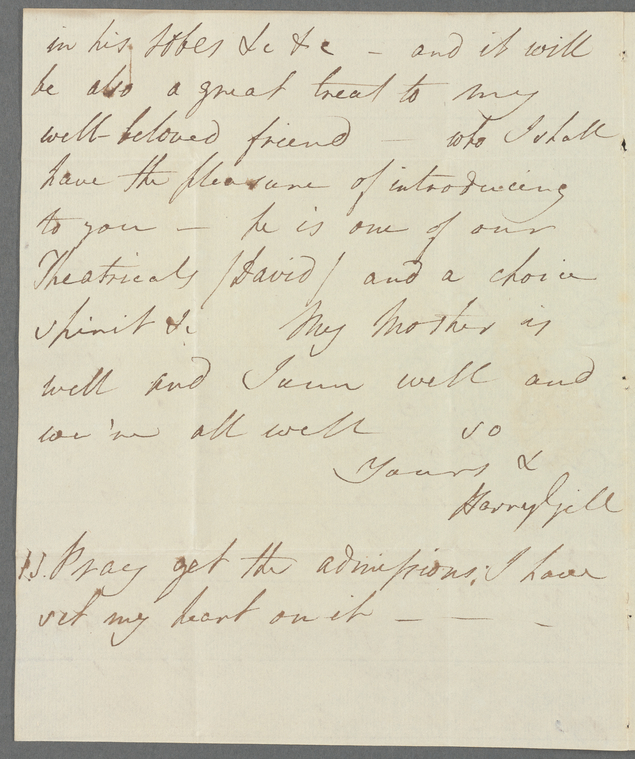 in his robes &c &c – and it will
be also a great treat to my
well-beloved friend – who I shall
have the pleasure of introducing
to you – he is one of our
Theatricals (David) and a choice
spirit &c My Mother is
well and I am well and
we're all well so
Yours &
Harry Gill
P.S. Pray get the admissions; I have
set my heart on it – – –